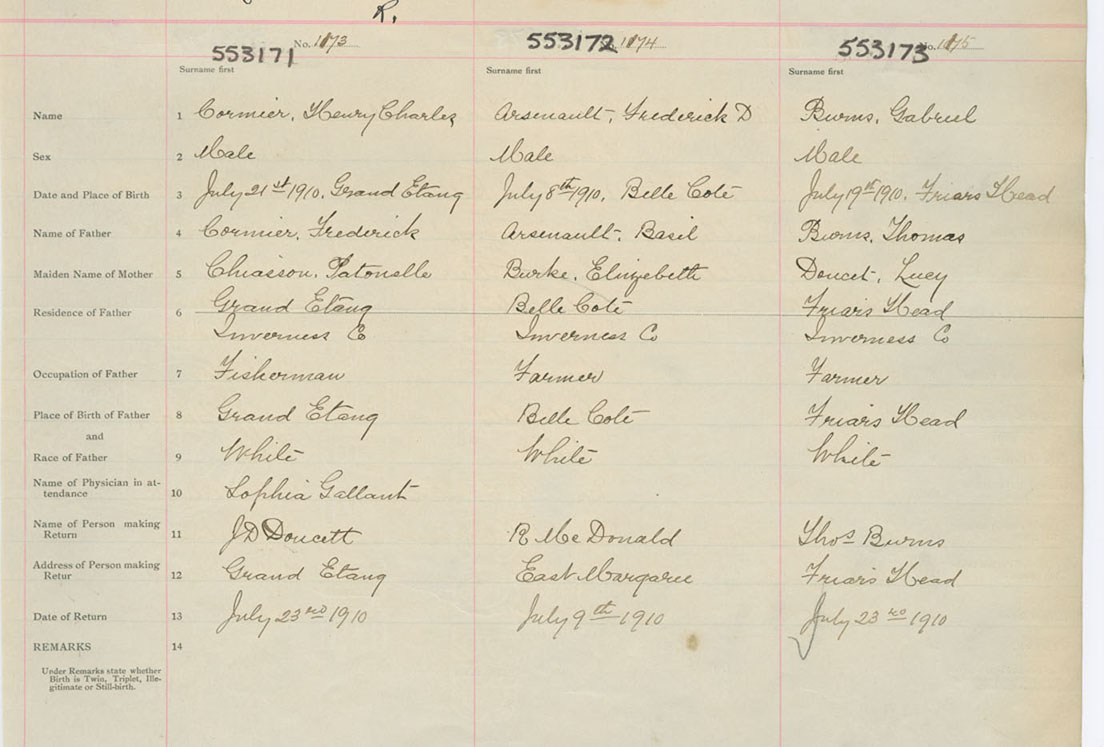 R.
553171 No. 1173 553172 No. 1174 553173 No. 1175
Surname first Surname first Surname first
Name 1 Cormier, Henry Charles Arsenault, Frederick D Burns, Gabriel
Sex 2 Male Male Male
Date and Place of Birth 3 July 21st 1910, Grand Etang July 8th 1910, Belle Cote July 19th 1910, Friars Head
Name of Father 4 Cormier, Frederick Arsenault, Basil Burns, Thomas
Maiden Name of Mother 5 Chiasson, Patonelle Burke, Elizebeth Doucet, Lucy
Residence of Father 6 Grand Etang Belle Cote Friars Head
Inverness C Inverness Co Inverness Co
Occupation of Father 7 Fisherman Farmer Farmer
Place of Birth of Father 8 Grand Etang Belle Cote Friars Head
and
Race of Father 9 White White White
Name of Physician in at-
tendance 10 Sophia Gallant
Name of Person making
Return 11 J D Doucett R McDonald Thos Burns
Address of Person making
Retur 12 Grand Etang East Margaree Friars Head
Date of Return 13 July 23rd 1910 July 9th 1910 July 23rd 1910
REMARKS 14
Under Remarks state whether
Birth is Twin, Triplet, Ille-
gitimate or Still-birth.